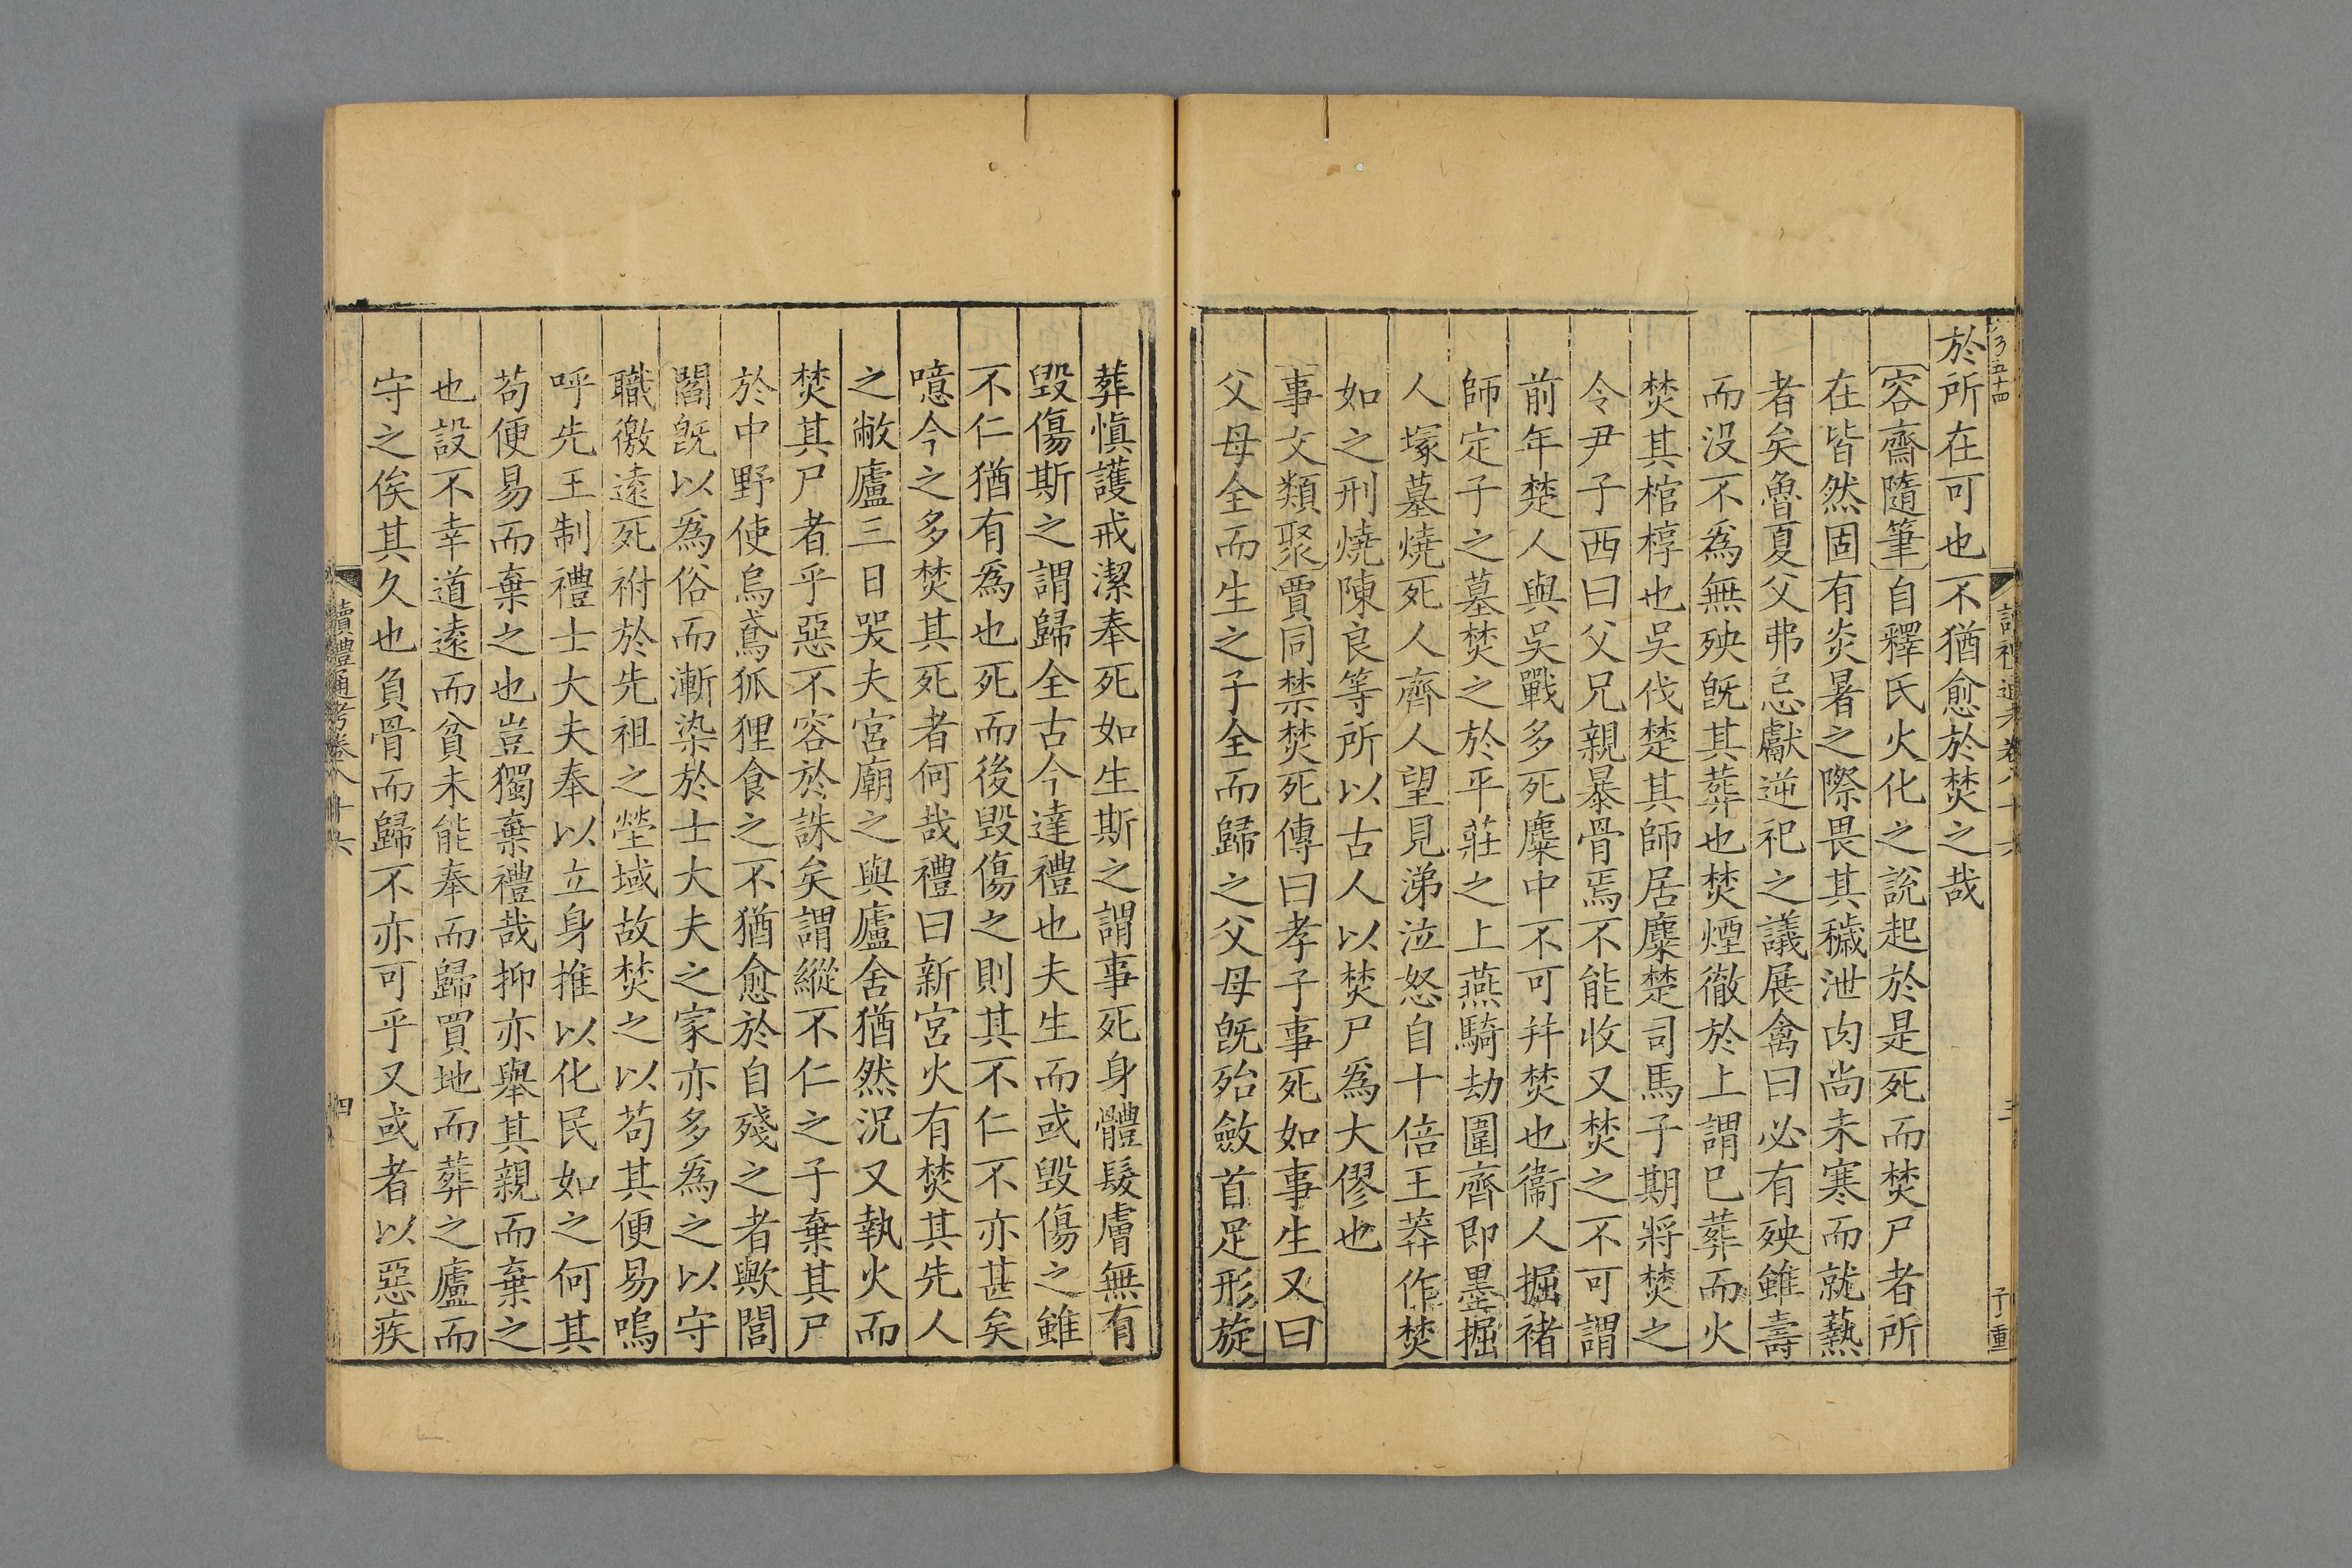 於所在可也不猶愈於焚之哉
容齋隨筆自釋氏火化之說起於是死而焚尸者所
在皆然固有炎暑之際畏其穢泄肉尚未寒而就爇
者矣魯夏父弗忌獻逆祀之議展禽曰必有殃雖壽
而没不為無殃旣其葬也焚煙徹於上謂巳葬而火
焚其棺椁也吳伐楚其師居麋楚司馬子期將焚之
令尹子西曰父兄親暴骨焉不能收又焚之不可謂
前年楚人與吳戰多死麋中不可并焚也衞人掘褚
師定子之墓焚之於平莊之上燕騎劫圍齊即墨掘
人塚墓燒死人齊人望見涕泣怒自十倍王莽作焚
如之刑燒陳良等所以古人以焚尸為大僇也
事文類聚賈同禁焚死傳曰孝子事死如事生又曰
父母全而生之子全而歸之父母旣殆斂首足形旋
葬愼護戒潔奉死如生斯之謂事死身體髮膚無有
毀傷斯之謂歸全古今達禮也夫生而或毀傷之雖
不仁猶有為也死而後毀傷之則其不仁不亦甚矣
噫今之多焚其死者何哉禮曰新宮火有焚其先人
之敝廬三日哭夫宮廟之與廬舍猶然況又執火而
焚其尸者乎惡不容於誅矣謂縱不仁之子棄其尸
於中野使烏鳶狐狸食之不猶愈於自殘之者歟閭
閻旣以為俗而漸染於士大夫之家亦多為之以守
職徼遠死祔於先祖之塋域故焚之以苟其便易嗚
呼先王制禮士大夫奉以立身推以化民如之何其
苟便易而棄之也豈獨棄禮哉抑亦舉其親而棄之
也設不幸道遠而貧未能奉而歸買地而葬之廬而
守之俟其久也負骨而歸不亦可乎又或者以惡疾
讀禮通考卷八十六
四